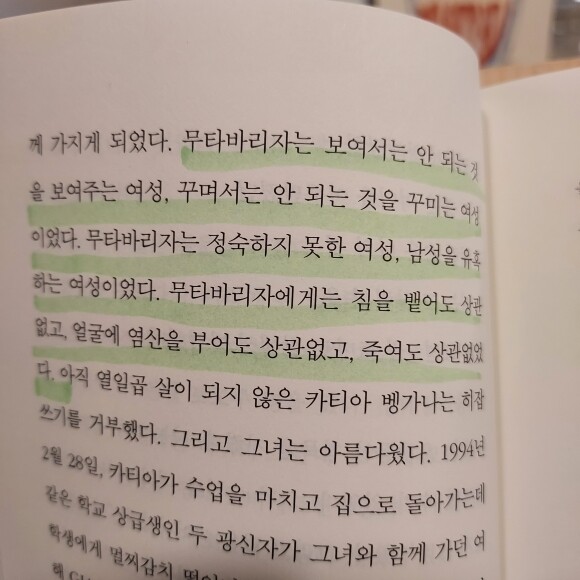 께 가지게 되었다. 무타바리자는 보여서는 안 되는 것
을 보여주는 여성, 꾸며서는 안 되는 것을 꾸미는 여성
이었다. 무타바리자는 정숙하지 못한 여성, 남성을 유혹
하는 여성이었다. 무타바리자에게는 침을 뱉어도 상관
없고, 얼굴에 염산을 부어도 상관없고, 죽여도 상관없었
다. 아직 열일곱 살이 되지 않은 카티아 벵가나는 히잡
쓰기를 거부했다. 그리고 그녀는 아름다웠다. 1994년
2월 28일, 카티아가 수업을 마치고 집으로 돌아가는데
같은 학교 상급생인 두 광신자가 그녀와 함께 가던 여
학생에게 멀찌감치